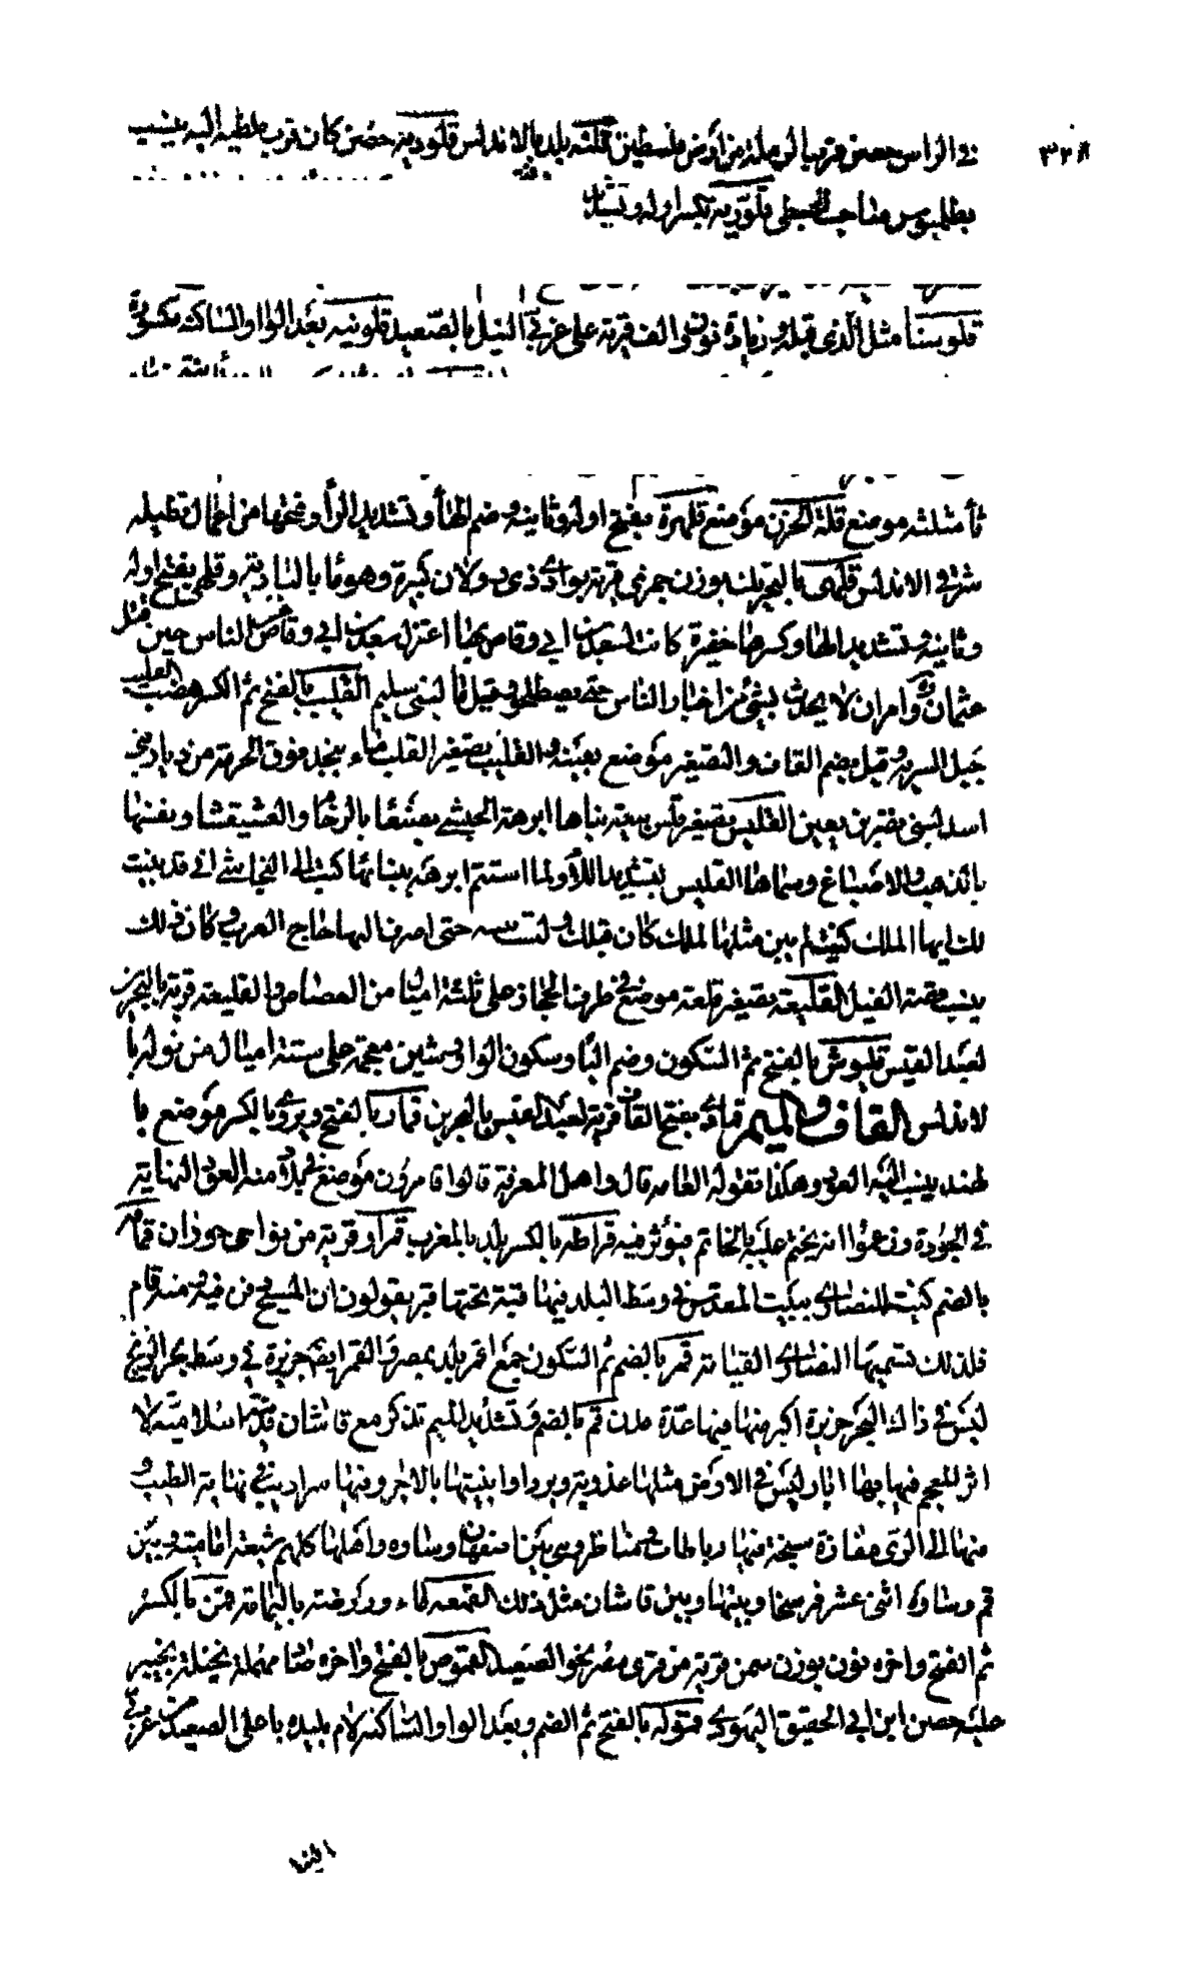 ٣٢٨
في الراس حصن قرب الرملة من ارض فلسطين قلنه بلد بالاندلس قلوذية حصن كان قرب ملطية اليه ينسب
بطلميوس صاحب المجسطي قلورية بكسر اوله وتشديد
قلوسنا مثل الذي قبله وزيادة نون والف قرية على غربي النيل بالصعيد قلونيه بعد الواو الساكنة مكسورة
ثا مثلثه موضع قلة الحزن موضع قلهرة بفتح اوله وثانيه وضم الها وتشديد الرا وفتحها من اعمال تطيله
شرقي الاندلس قلهى بالتحريك بوزن جمزى قرية بوادي ذي دولان كبيرة وهو ما بالبادية وقلهي بفتح اوله
وثانيه وتشديد الها وكسرها حفيرة كانت لسعد بن ابي وقاص بها اعتزل سعد بن ابي وقاص الناس حين قتل
عثمان وامر ان لا يحدث بشئ من اخبار الناس حتى يصطلحوا وقيل ما لبنى سليم القليب بالفتح ثم الكسر هضب القليب
جبل الشربة وقيل بضم القاف والتصغير موضع بعينه والقليب بصغير القلب ماء بنجد فوق الخربة من ديار بني
اسد لبنى نصر بن قعين القليس تصغير قلس بيعة بناها ابرهة الحبشي بصنعا بالرخام والفسيفسا ونقشها
بالذهب والاصباغ وسماها القليس بتشديد اللام ولما استتم ابرهة بنائها كتب الى النجاشي اني قد بنيت
لك ايها الملك كنيسة لم يبن مثلها لملك كان قبلك ولست حتى اصرف اليها حاج العرب وكان ذلك
بسبب قصة الفيل القليعة تصغير قلعة موضع في طرف الحجاز على ثلثة اميال من الغضاض والقليعة قرية بالبحرين
لعبد القيس قليوش بالفتح ثم السكون وضم اليا وسكون الواو وشين معجمة على ستة اميال من نوله با
لاندلس القاف والميم قمادي بفتح القاف قرية لعبد القيس بالبحرين قمار بالفتح ويروى بالكسر موضع با
لهند ينسب اليه العود هكذا تقوله العامه قال واهل المعرفة قالوا قامرون موضع في بلاد منه العود النهاية
في الجودة وزعموا انه يختم عليه بالخاتم فيؤثر فيه قراطه بالكسر بلد بالمغرب قمراو قرية من نواحي حوران قمامه
بالضم كنيسة للنصارى ببيت المقدس في وسط البلد فيها قبة تحتها قبر يقولون ان المسيح دفن فيه ومنه قام
فلذلك تسميها النصارى القيامة قمر بالضم ثم السكون جمع اقمر بلد بمصر والقمر ايضا جزيرة في وسط بحر الزنج
ليس في ذلك البحر جزيرة اكبر منها فيها عدة مدن قم بالضم وتشديد الميم تذكر مع قاشان مدينة اسلامية لا
اثر للعجم فيها وبها ابار ليس في الارض مثلها عذوبة وبردا وابنيتها بالاجر وفيها سراديب في نهاية الطيب و
منها الى الرى مفازة سبخة فيها رباطات ومناظر وهي بين اصفهان وساوه واهلها كلهم شيعة امامية وبين
قم وساوه اثنى عشر فرسخا وبينها وبين قاشان مثل ذلك القمعه ماء وروضه باليمامة قمن بالكسر
ثم الفتح واخره نون بوزن سمن قرية من قرى مصر نحو الصعيد القموص بالفتح واخره صاد مهملة جبل بخيبر
عليه حصن ابن ابي الحقيق اليهودى قموله بالفتح ثم الضم وبعد الواو الساكنه لام بليده باعلى الصعيد من غربي
النيل